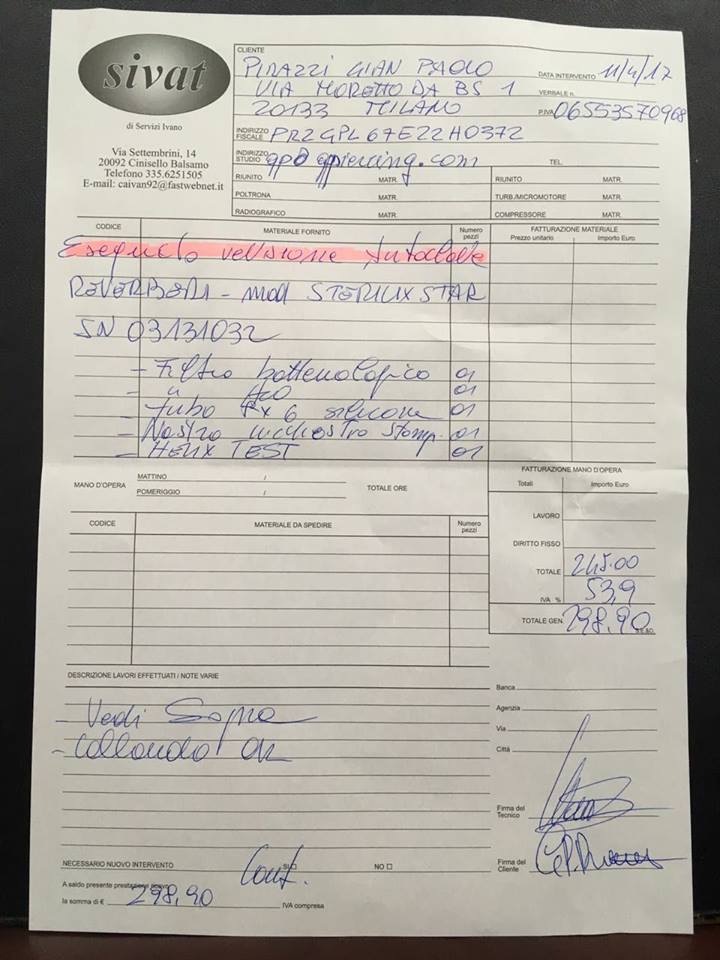 sivat
di Servizi Ivano
Via Settembrini, 14
20092 Cinisello Balsamo
Telefono 335.6251505
E-mail: caivan92@fastwebnet.it
CLIENTE
PIRAZZI GIAN PAOLO
VIA MORETTO DA BS 1
20133 MILANO
DATA INTERVENTO 11/4/17
VERBALE n.
P.IVA 06553570968
INDIRIZZO FISCALE PRZGPL67E22H037Z
INDIRIZZO STUDIO gp@gpiercing.com TEL.
RIUNITO MATR. RIUNITO MATR.
POLTRONA MATR. TURB./MICROMOTORE MATR.
RADIOGRAFICO MATR. COMPRESSORE MATR.
CODICE MATERIALE FORNITO Numero pezzi FATTURAZIONE MATERIALE
Prezzo unitario Importo Euro
Autoclave
REVERBERI - mod STERILIX STAR
SN 03131032
- Filtro battereologico 01
- " 01
- tubo 6 silicone 01
- Nastro inchiostro stamp. 01
- HELIX TEST 01
FATTURAZIONE MANO D'OPERA
MANO D'OPERA MATTINO / POMERIGGIO / TOTALE ORE
Totali Importo Euro
LAVORO
DIRITTO FISSO
TOTALE 245.00
IVA % 53,9
TOTALE GEN. 298,90
S.E.&O.
CODICE MATERIALE DA SPEDIRE Numero pezzi
DESCRIZIONE LAVORI EFFETTUATI / NOTE VARIE
- Vedi Sopra
- Collaudo OK
Banca
Agenzia
Via
Città
Firma del Tecnico
Firma del Cliente
NECESSARIO NUOVO INTERVENTO SI NO
Cont.
A saldo presente prestazione
la somma di € 298,90 IVA compresa